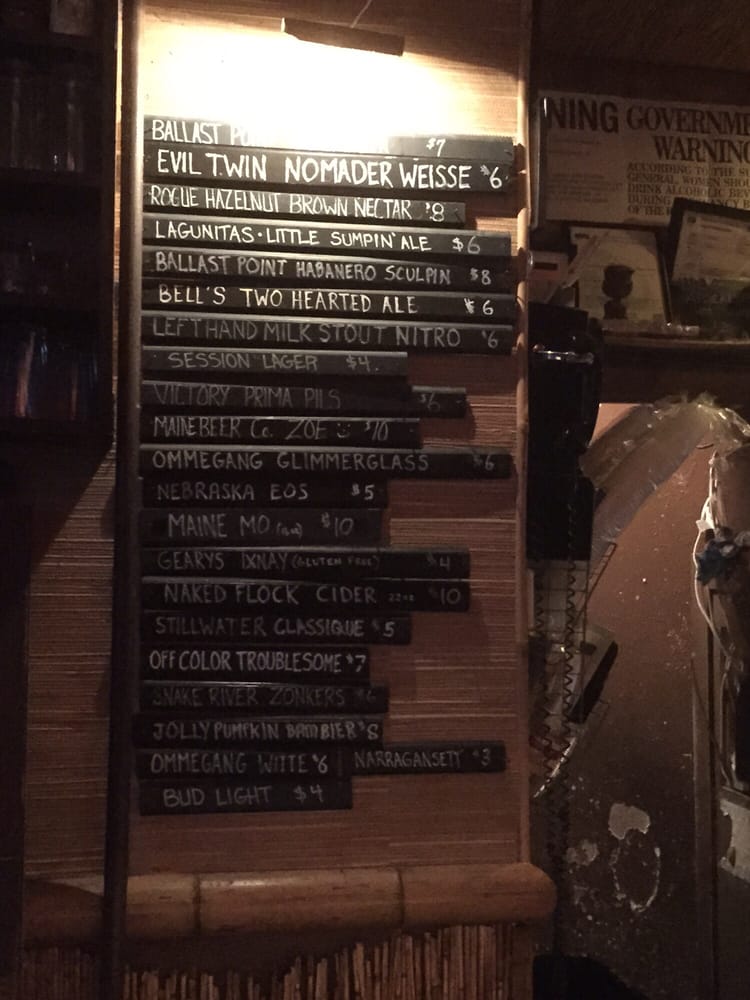 BALLAST $7
EVIL TWIN NOMADER WEISSE $6
ROGUE HAZELNUT BROWN NECTAR $8
LAGUNITAS · LITTLE SUMPIN' ALE $6
BALLAST POINT HABANERO SCULPIN $8
BELL'S TWO HEARTED ALE $6
LEFT HAND MILK STOUT NITRO $6
SESSION LAGER $4.
VICTORY PRIMA PILS $6
MAINE BEER Co. ZOE $10
OMMEGANG GLIMMERGLASS $6
NEBRASKA EOS $5
MAINE MO $10
GEARYS IXNAY (GLUTEN FREE) $4
NAKED FLOCK CIDER 22oz $10
STILLWATER CLASSIQUE $5
OFF COLOR TROUBLESOME $7
SNAKE RIVER ZONKERS $6
JOLLY PUMPKIN BAM BIER $8
OMMEGANG WITTE $6 NARRAGANSETT $3
BUD LIGHT $4
NING GOVERNME
WARNING
ACCORDING TO THE SU
GENERAL, WOMEN SHO
DRINK ALCOHOLIC BEV
DURING
OF THE